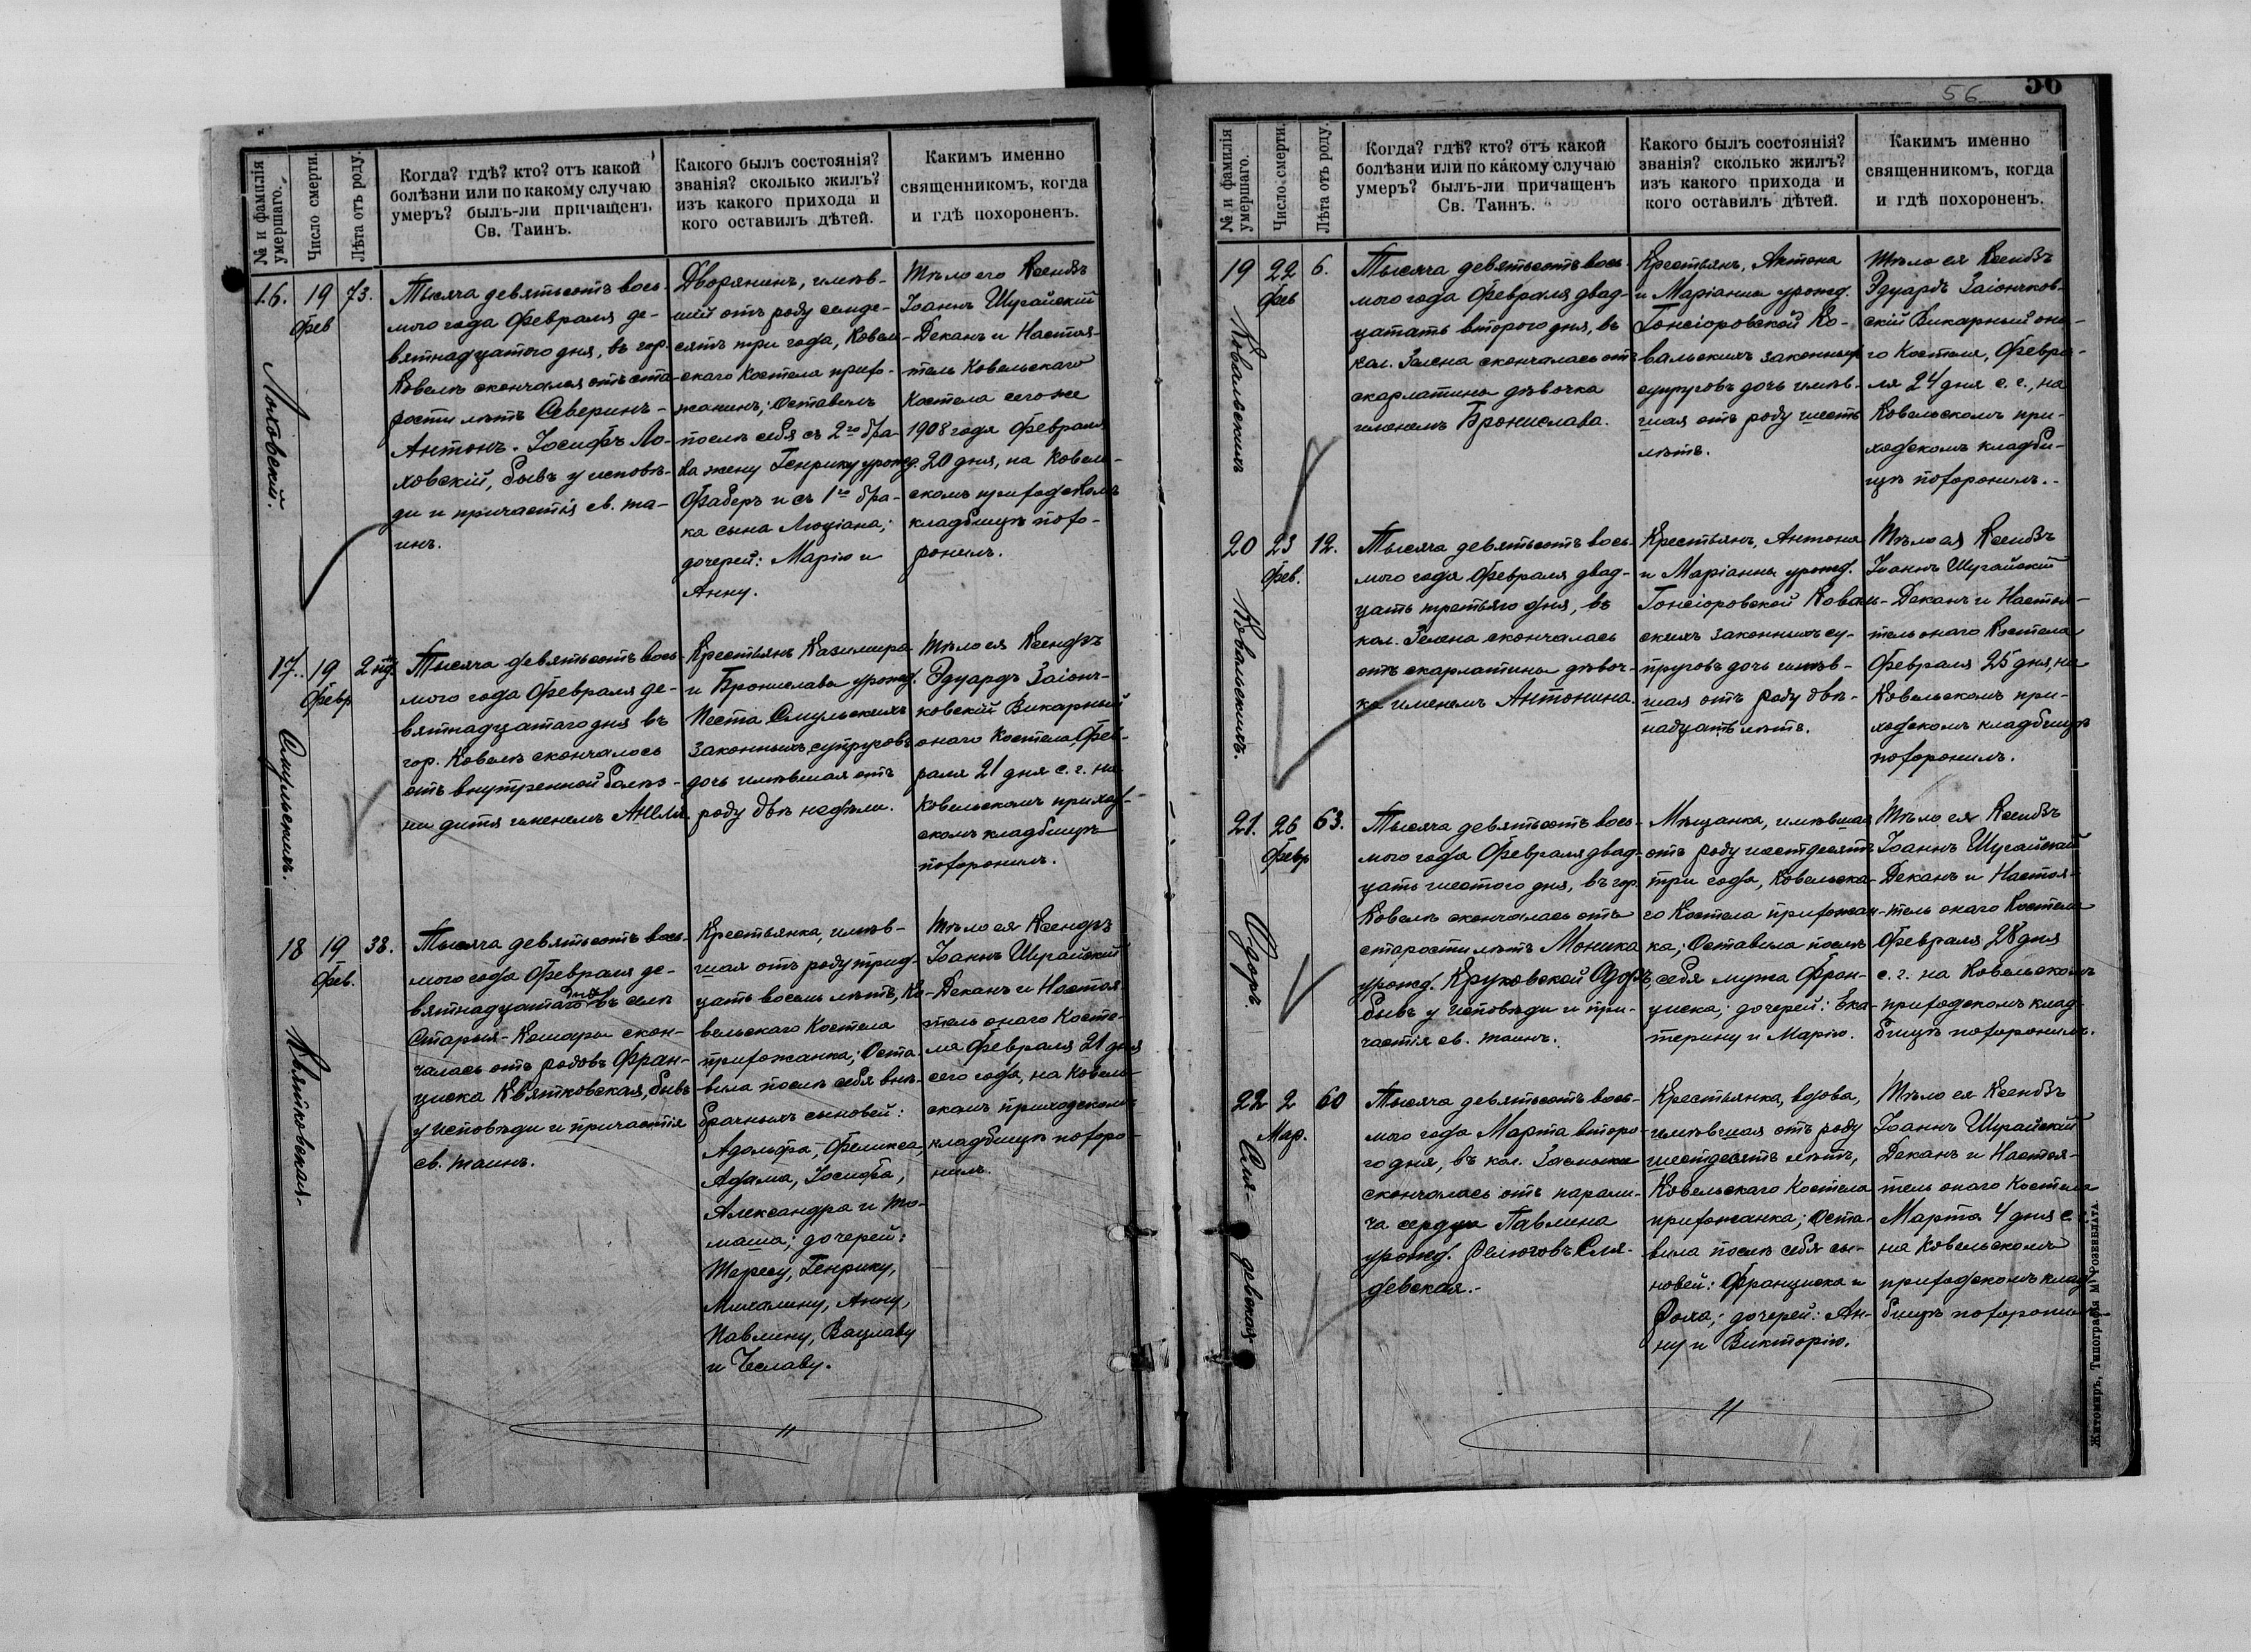 № и фамилія
умершаго.
Число смерти.
Лѣта отъ роду.
Когда? гдѣ? кто? отъ какой
болѣзни или по какому случаю
умеръ? былъ-ли причащенъ
Св. Таинъ.
Какого былъ состоянія?
званія? сколько жилъ?
изъ какого прихода и
кого оставилъ дѣтей.
Какимъ именно
священникомъ, когда
и гдѣ похороненъ.
16.
19
Фев
73.
Лоховскій.
Тысяча девятьсотъ вось-
мого года Февраля де-
вятнадцатого дня, въ гор.
Ковелѣ скончался отъ ста-
рости лѣтъ Северинъ-
Антонъ-Іосифъ Ло-
ховскій, бывъ у исповѣ-
ди и причастія св. та-
инъ.
Дворянинъ, имѣв-
шій отъ роду семде-
сятъ три года, Ковель-
скаго Костела прихо-
жанинъ; Оставилъ
послѣ себя съ 2го бра-
ка жену Генрику урожд.
Фаберъ и съ 1го бра-
ка сына Люціана;
дочерей: Марію и
Анну.
Тѣло его Ксендзъ
Іоаннъ Шугайскій
Деканъ и Настоя-
тель Ковельскаго
Костела сегоже
1908 года Февраля
20 дня, на Ковель-
скомъ приходскомъ
кладбищѣ похо-
ронилъ.
17.
19
Февр
2 нед.
Смульскихъ.
Тысяча девятьсотъ вось-
мого года Февраля де-
вятнадцатаго дня въ
гор. Ковелѣ скончалось
отъ внутренной болѣз-
ни дитя именемъ Анеля.
Крестьянъ Казимира
и Брониславы урожд.
Песта Смульскихъ
законныхъ супруговъ
дочь имѣвшая отъ
роду двѣ недѣли.
Тѣло ея Ксендзъ
Эдуардъ Заіонч-
ковскій Викарный
онаго Костела, Фев-
раля 21 дня с. г. на
Ковельскомъ приход-
скомъ кладбищѣ
похоронилъ.
18
19
Фев.
38.
Квятковская.
Тысяча девятьсотъ вось-
мого года Февраля де-
вятнадцатаго дня въ селѣ
Старыя-Кошары скон-
чалась отъ родовъ Фран-
циска Квятковская, бывъ
у исповѣди и причастія
св. таинъ.
Крестьянка, имѣв-
шая отъ роду трид-
цать восемь лѣтъ, Ко-
вельскаго Костела
прихожанка; Оста-
вила послѣ себя внѣ-
брачныхъ сыновей:
Адольфа, Феликса,
Адама, Іосифа,
Александра и То-
маша; дочерей:
Тересу, Генрику,
Михалину, Анну,
Павлину, Вацлаву
и Чеславу.
Тѣло ея Ксендзъ
Іоаннъ Шугайскій
Деканъ и Настоя-
тель онаго Косте-
ла Февраля 21 дня
сего года, на Ковель-
скомъ приходскомъ
кладбищѣ похоро-
нилъ.
56
56
№ и фамилія
умершаго.
Число смерти.
Лѣта отъ роду.
Когда? гдѣ? кто? отъ какой
болѣзни или по какому случаю
умеръ? былъ-ли причащенъ
Св. Таинъ.
Какого былъ состоянія?
званія? сколько жилъ?
изъ какого прихода и
кого оставилъ дѣтей.
Какимъ именно
священникомъ, когда
и гдѣ похороненъ.
19
22
Фев
6.
Ковальскихъ
Тысяча девятьсотъ вось-
мого года Февраля двад-
цатать второго дня, въ
кол. Зелена скончалась отъ
скарлатины дѣвочка
именемъ Бронислава.
Крестьянъ, Антона
и Маріанны урожд.
Гонсіоровской Ко-
вальскихъ законныхъ
супруговъ дочь имѣв-
шая отъ роду шесть
лѣтъ.
Тѣло ея Ксендзъ
Эдуардъ Заіончков-
скій Викарный она-
го Костела, Февра-
ля 24 дня с. г., на
Ковельскомъ при-
ходскомъ кладби-
щѣ похоронилъ.
20
23
Фев.
12.
Ковальскихъ.
Тысяча девятьсотъ вось-
мого года Февраля двад-
цать третьяго дня, въ
кол. Зелена скончалась
отъ скарлатины дѣвоч-
ка именемъ Антонина.
Крестьянъ, Антона
и Маріанны урожд.
Гонсіоровской Коваль-
скихъ законныхъ су-
пруговъ дочь имѣв-
шая отъ роду двѣ-
надцать лѣтъ.
Тѣло ея Ксендзъ
Іоаннъ Шугайскій
Деканъ и Настоя-
тель онаго Костела
Февраля 25 дня, на
Ковельскомъ при-
ходскомъ кладбищѣ
похоронилъ.
21.
26
Февр
63.
Одоръ.
Тысяча девятьсотъ вось-
мого года Февраля двад-
цать шестого дня, въ гор.
Ковелѣ скончалась отъ
старости лѣтъ Моника
урожд. Круковской Одоръ,
бывъ у исповѣди и при-
частія св. таинъ.
Мѣщанка, имѣвшая
отъ роду шестдесятъ
три года, Ковельска-
го Костела прихожан-
ка; Оставила послѣ
себя мужа Фран-
циска; дочерей: Ека-
терину и Марію.
Тѣло ея Ксендзъ
Іоаннъ Шугайскій
Деканъ и Настоя-
тель онаго Костела
Февраля 28 дня
с. г. на Ковельскомъ
приходскомъ клад-
бищѣ похоронилъ.
22
2
Мар.
60
Сля-
девская
Тысяча девятьсотъ вось-
мого года Марта второ-
го дня, въ кол.
скончалась отъ парали-
ча сердца Павлина
урожд. Сля-
девская.
Крестьянка, вдова,
имѣвшая отъ роду
шестдесятъ лѣтъ,
Ковельскаго Костела
прихожанка; Оста-
вила послѣ себя сы-
новей: Франциска и
Роха; дочерей: Ан-
ну и Викторію.
Тѣло ея Ксендзъ
Іоаннъ Шугайскій
Деканъ и Настоя-
тель онаго Костела
Марта 4 дня с. г.
на Ковельскомъ
приходскомъ клад-
бищѣ похоронилъ
Житомиръ, Типографія М. Розенблата